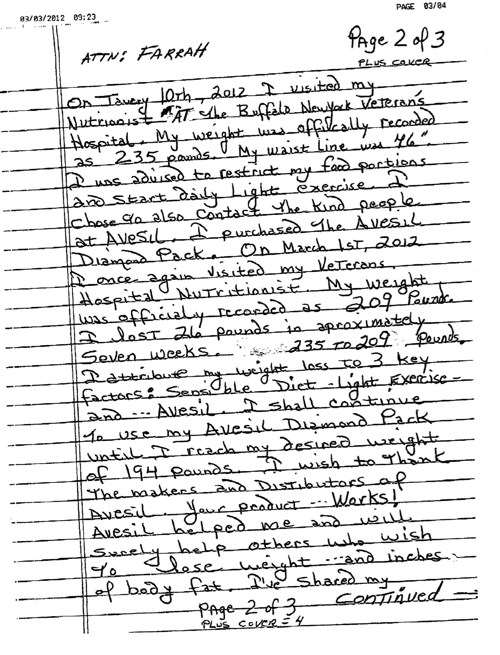 03/03/2012 09:23 PAGE 03/04
ATTN: FARRAH PAge 2 of 3
PLUS COVER
On 10th, 2012 I visited my
Nutrionist AT the Buffalo NewYork Veteran's
Hospital. My weight was officially recorded
as 235 pounds. My waist Line was 46".
I was advised to restrict my food portions
and start daily Light exercise. I
Chose to also Contact the Kind people
at AVESIL. I purchased The Avesil
Diamond Pack. On March 1ST, 2012
I once again visited my VeTerans
Hospital NuTritionist. My weight
was officially recorded as 209 Pounds.
I losT 26 pounds in aproximately
Seven weeks. 235 TO 209 Pounds.
I attribute my weight loss To 3 Key
factors: Sensible Diet - Light Exercise -
and --- Avesil. I shall continue
To use my Avesil Diamond Pack
until I reach my desired weight
of 194 Pounds. I wish to Thank
The makers and Distributors of
Avesil. Your product --- Works!
Avesil helped me and will
Surely help others who wish
To lose weight --- and inches
of body fat. I've Shared my
PAge 2 of 3 Continued
PLUS COVER = 4